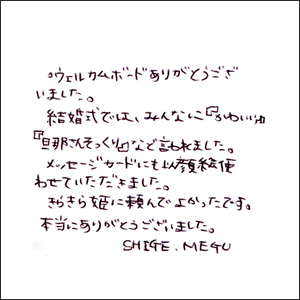 ウェルカムボードありがとうござ
いました。
結婚式では、みんなに『かわいい』
『旦那さんそっくり』など言われました。
メッセージカードにも似顔絵使
わせていただきました。
きらきら姫に頼んでよかったです。
本当にありがとうございました。
SHIGE.MEGU